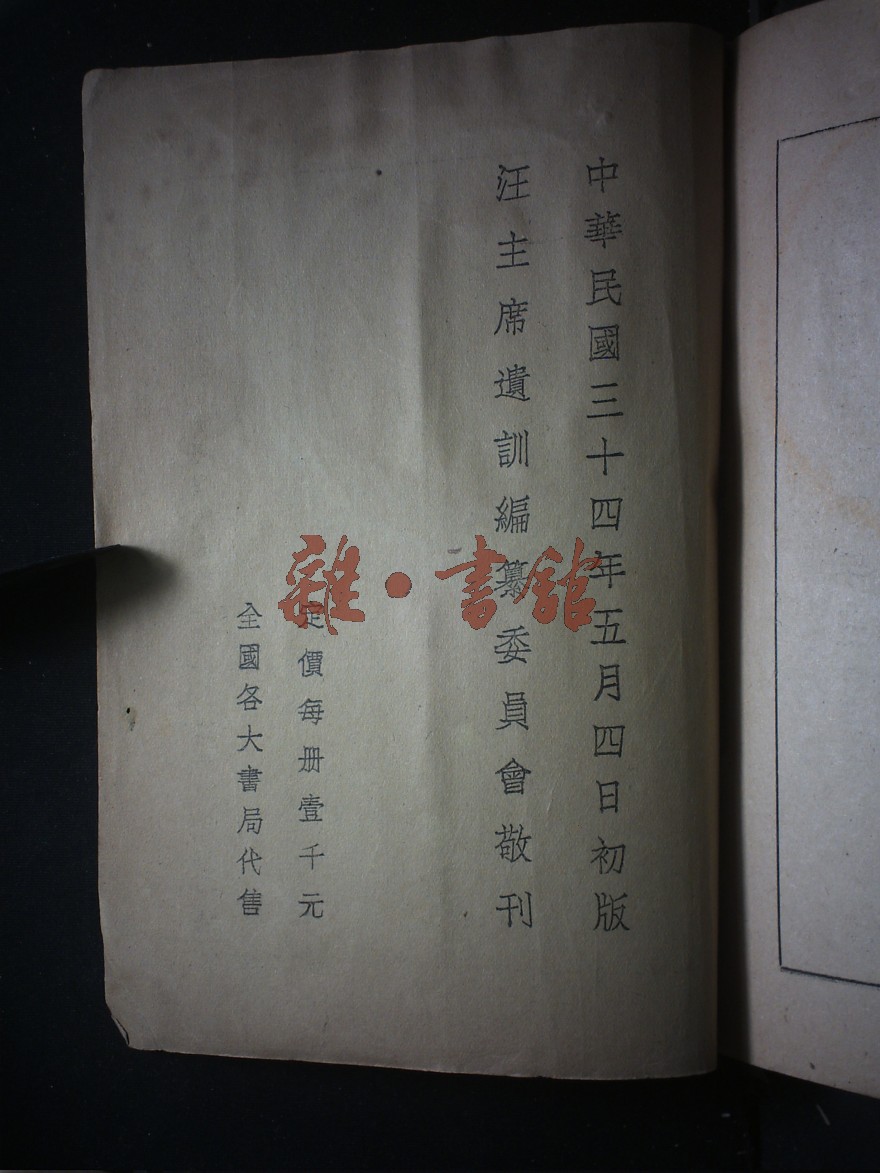 中華民國三十四年五月四日初版
汪主席遺訓編纂委員會敬刊
定價每册壹千元
全國各大書局代售
雜·書館